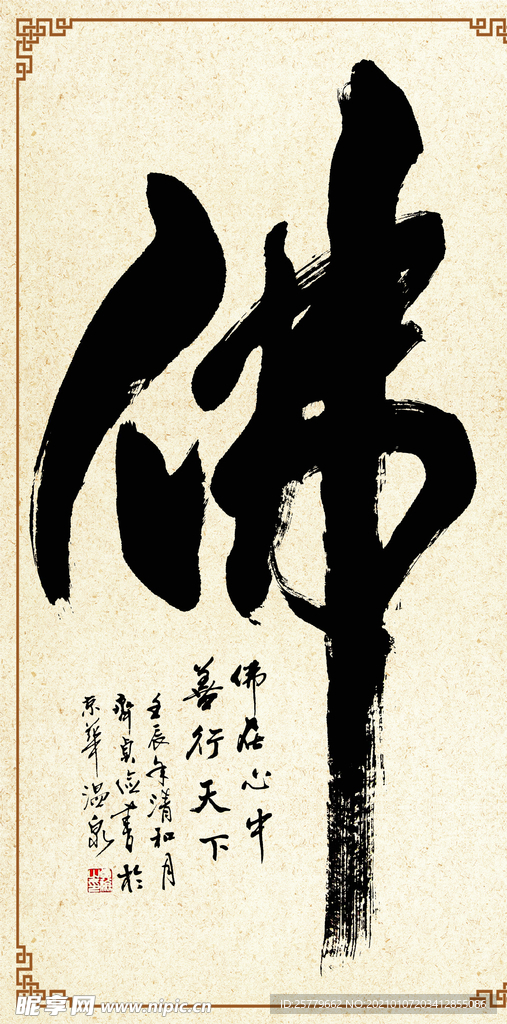 佛
佛在心中
善行天下
壬辰年清和月
齊貞俭書於
京華温泉
昵享网 www.nipic.cn
ID:25779662 NO:20210107203412855086